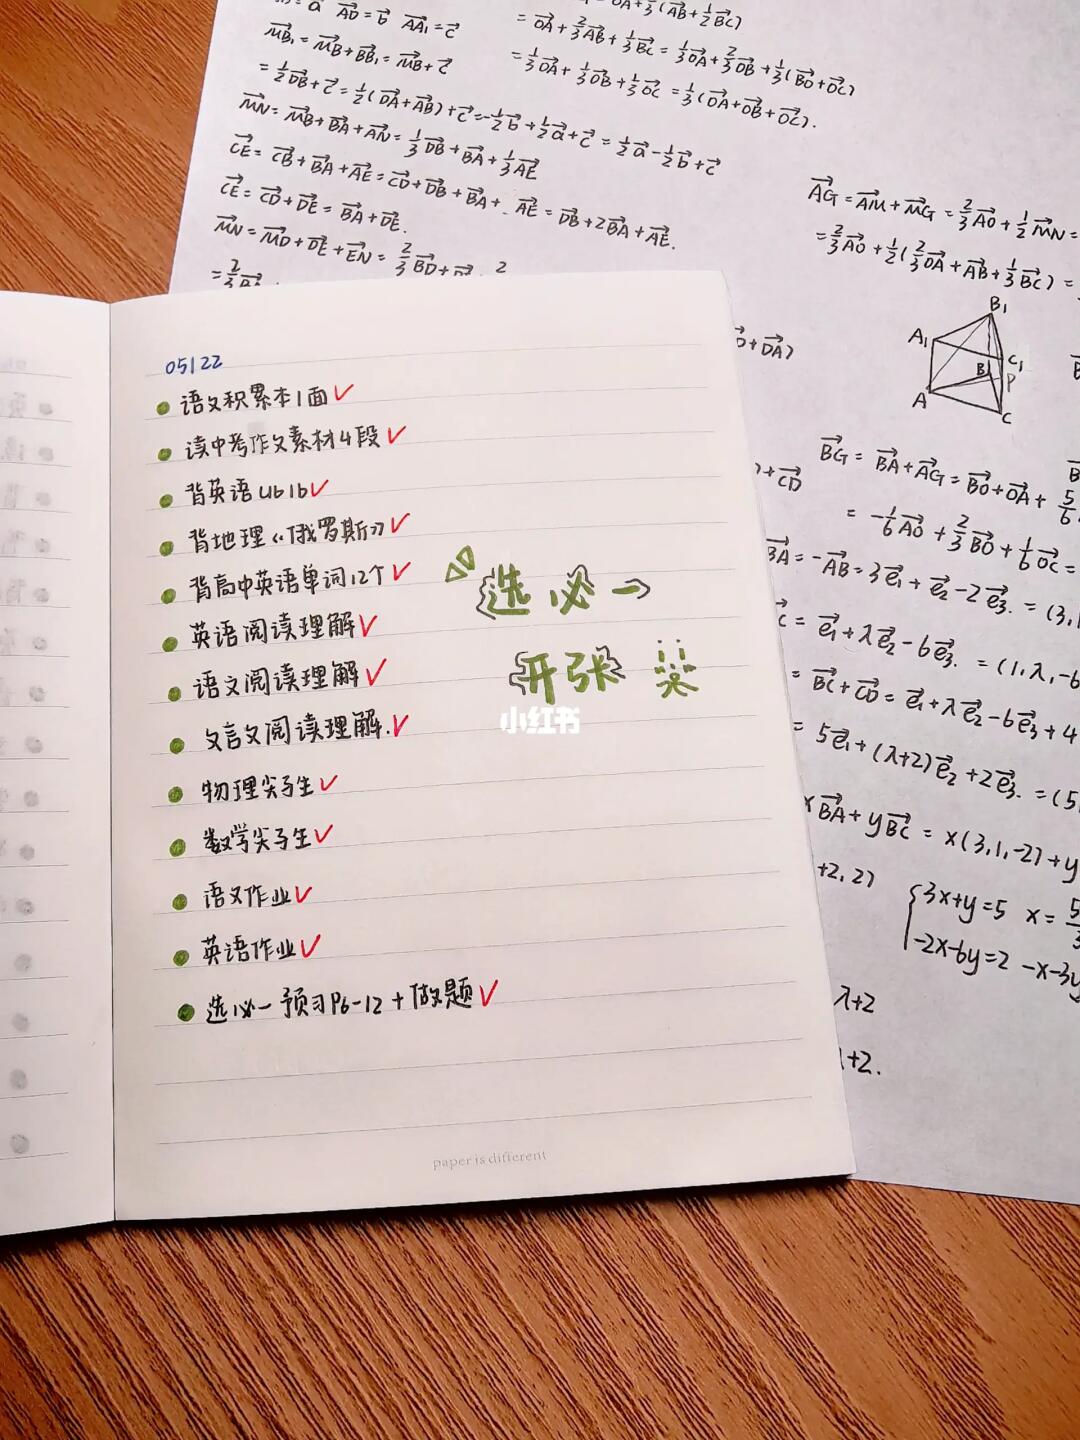 →a →AD=→b →AA₁=→c
→MB₁=→MB+→BB₁=→MB+→c
=½→DB+→c=½(→DA+→AB)+→c=-½→b+½→a+→c=½→a-½→b+→c
→MN=→MB+→BA+→AN=⅓→DB+→BA+⅓→AE
→CE=→CB+→BA+→AE=→CD+→DB+→BA+→AE=→DB+2→BA+→AE.
→CE=→CD+→DE=→BA+→DE.
→MN=→MD+→DE+→EN=⅔→BD+
→OA+⅓(→AB+½→BC)
=→OA+⅔→AB+⅓→BC=⅓→OA+⅔→OB+⅓(→BO+→OC)
=⅓→OA+⅓→OB+⅓→OC=⅓(→OA+→OB+→OC).
→AG=→AM+→MG=⅔→AO+½→MN=
=⅔→AO+½(⅔→OA+→AB+⅓→BC)=
B₁
A₁
C₁
B
P
A
C
+→DA)
→BG=→BA+→AG=→BO+→OA+⅚
+→CD
=-⅙→AO+⅔→BO+⅙→OC=
→BA=-→AB=3→e₁+→e₂-2→e₃.=(3,1
=→e₁+λ→e₂-6→e₃.=(1,λ,-6
=→BC+→CD=→e₁+λ→e₂-6→e₃+4
=5→e₁+(λ+2)→e₂+2→e₃.=(5
x→BA+y→BC=x(3,1,-2)+y
+2,2)
3x+y=5 x=5/3
-2x-6y=2 -x-3y
λ+2
λ+2.
05/22
语文积累本1面✓
读中考作文素材4段✓
背英语U6 1b✓
背地理《俄罗斯》✓
背高中英语单词12个✓
英语阅读理解✓
语文阅读理解✓
文言文阅读理解.✓
物理尖子生✓
数学尖子生✓
语文作业✓
英语作业✓
选必一预习P6-12+做题✓
选必一
开张
小红书
paper is different